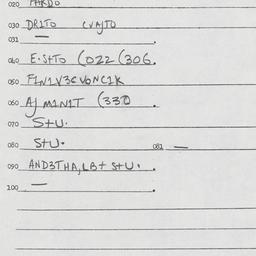 020 HARDO
030 DR1TO CVAJTO
031 —
040 E.S+TO (022 (306.
050 F1N1V3CV6NC1K
060 AJ M1N1T (330 .
070 S+U.
080 S+U. 081 —
090 AND3THA,LB+ S+U.
100 — .